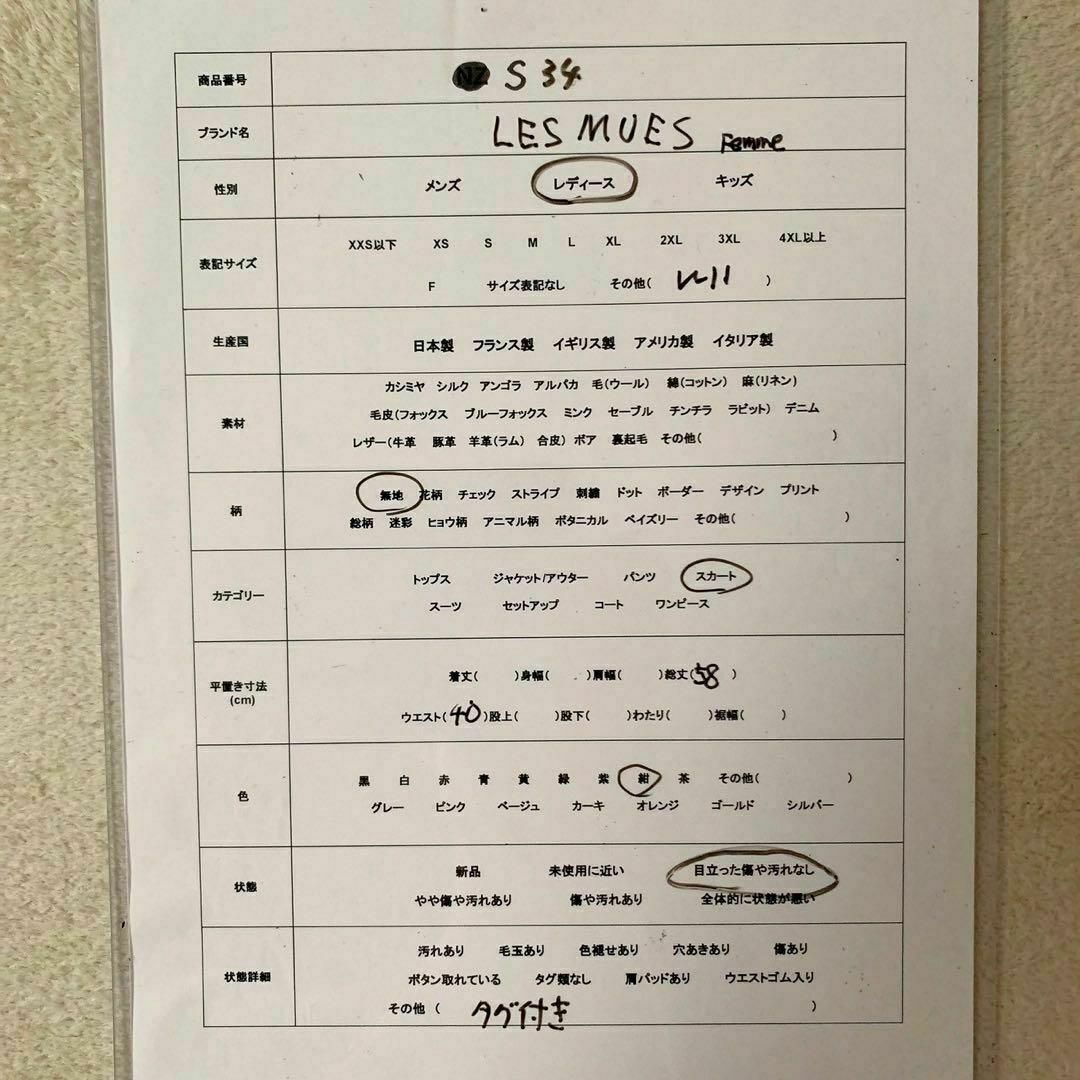 商品番号 NZ S 34
ブランド名 LES MUES Femme
性別 メンズ レディース キッズ
表記サイズ
XXS以下 XS S M L XL 2XL 3XL 4XL以上
F サイズ表記なし その他( )
生産国 日本製 フランス製 イギリス製 アメリカ製 イタリア製
素材
カシミヤ シルク アンゴラ アルパカ 毛(ウール) 綿(コットン) 麻(リネン)
毛皮(フォックス ブルーフォックス ミンク セーブル チンチラ ラビット) デニム
レザー(牛革 豚革 羊革(ラム) 合皮) ボア 裏起毛 その他( )
柄
無地 花柄 チェック ストライプ 刺繍 ドット ボーダー デザイン プリント
総柄 迷彩 ヒョウ柄 アニマル柄 ボタニカル ペイズリー その他( )
カテゴリー
トップス ジャケット/アウター パンツ スカート
スーツ セットアップ コート ワンピース
平置き寸法
(cm)
着丈( )身幅( )肩幅( )総丈(58 )
ウエスト(40)股上( )股下( )わたり( )裾幅( )
色
黒 白 赤 青 黄 緑 紫 紺 茶 その他( )
グレー ピンク ベージュ カーキ オレンジ ゴールド シルバー
状態
新品 未使用に近い 目立った傷や汚れなし
やや傷や汚れあり 傷や汚れあり 全体的に状態が悪い
状態詳細
汚れあり 毛玉あり 色褪せあり 穴あきあり 傷あり
ボタン取れている タグ類なし 肩パッドあり ウエストゴム入り
その他 ( タグ付き )